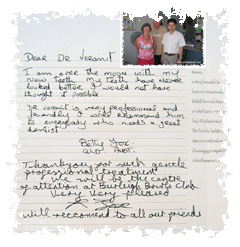 Dear Dr Veranit
I am over the moon with my
new teeth my teeth have never
looked better I would not have
thought it possible
Dr Veranit is very professional and
friendly I will recommend him
to everyone who needs a great
dentist
Betty Fox.
Thankyou for such gentle
professional treatment
We will be the centre
of attention at Burleigh Bowls Club
Very Very pleased
will reccomend to all our friends